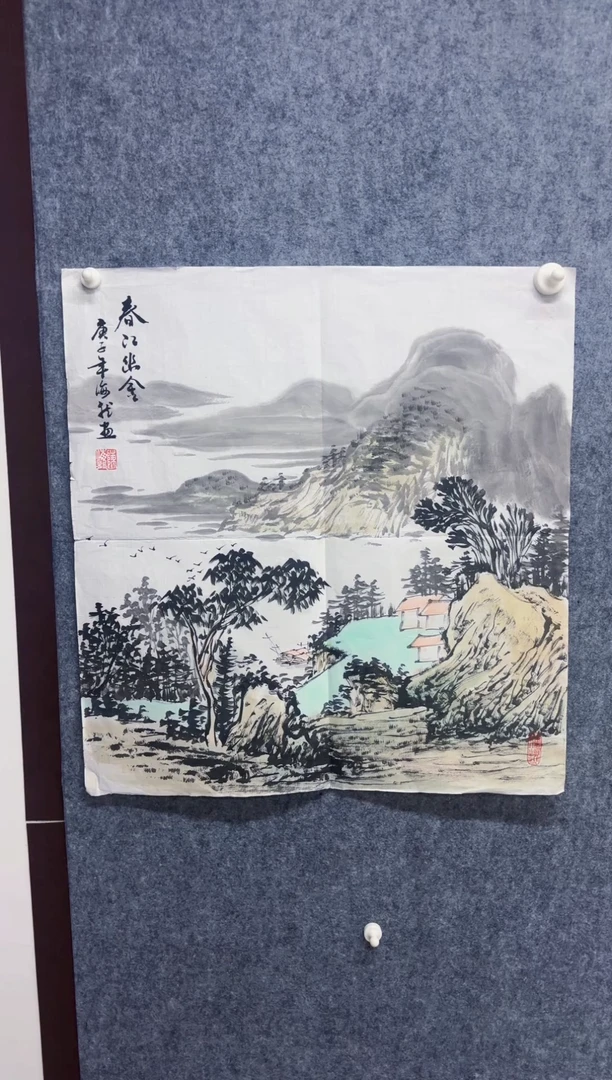 春江幽舍
庚子年海龙画